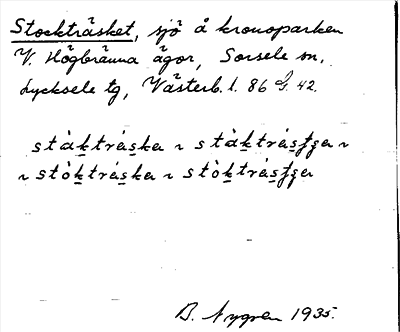 Stockträsket, sjö å kronoparken
V. Högbränna ägor, Sorsele sn,
Lycksele tg, Västerb. l. 86 G. 42.
stàktráska ~ stàktrásʃʃa ~
~ stòktráska ~ stòktrásʃʃa
B. Nygren 1935.